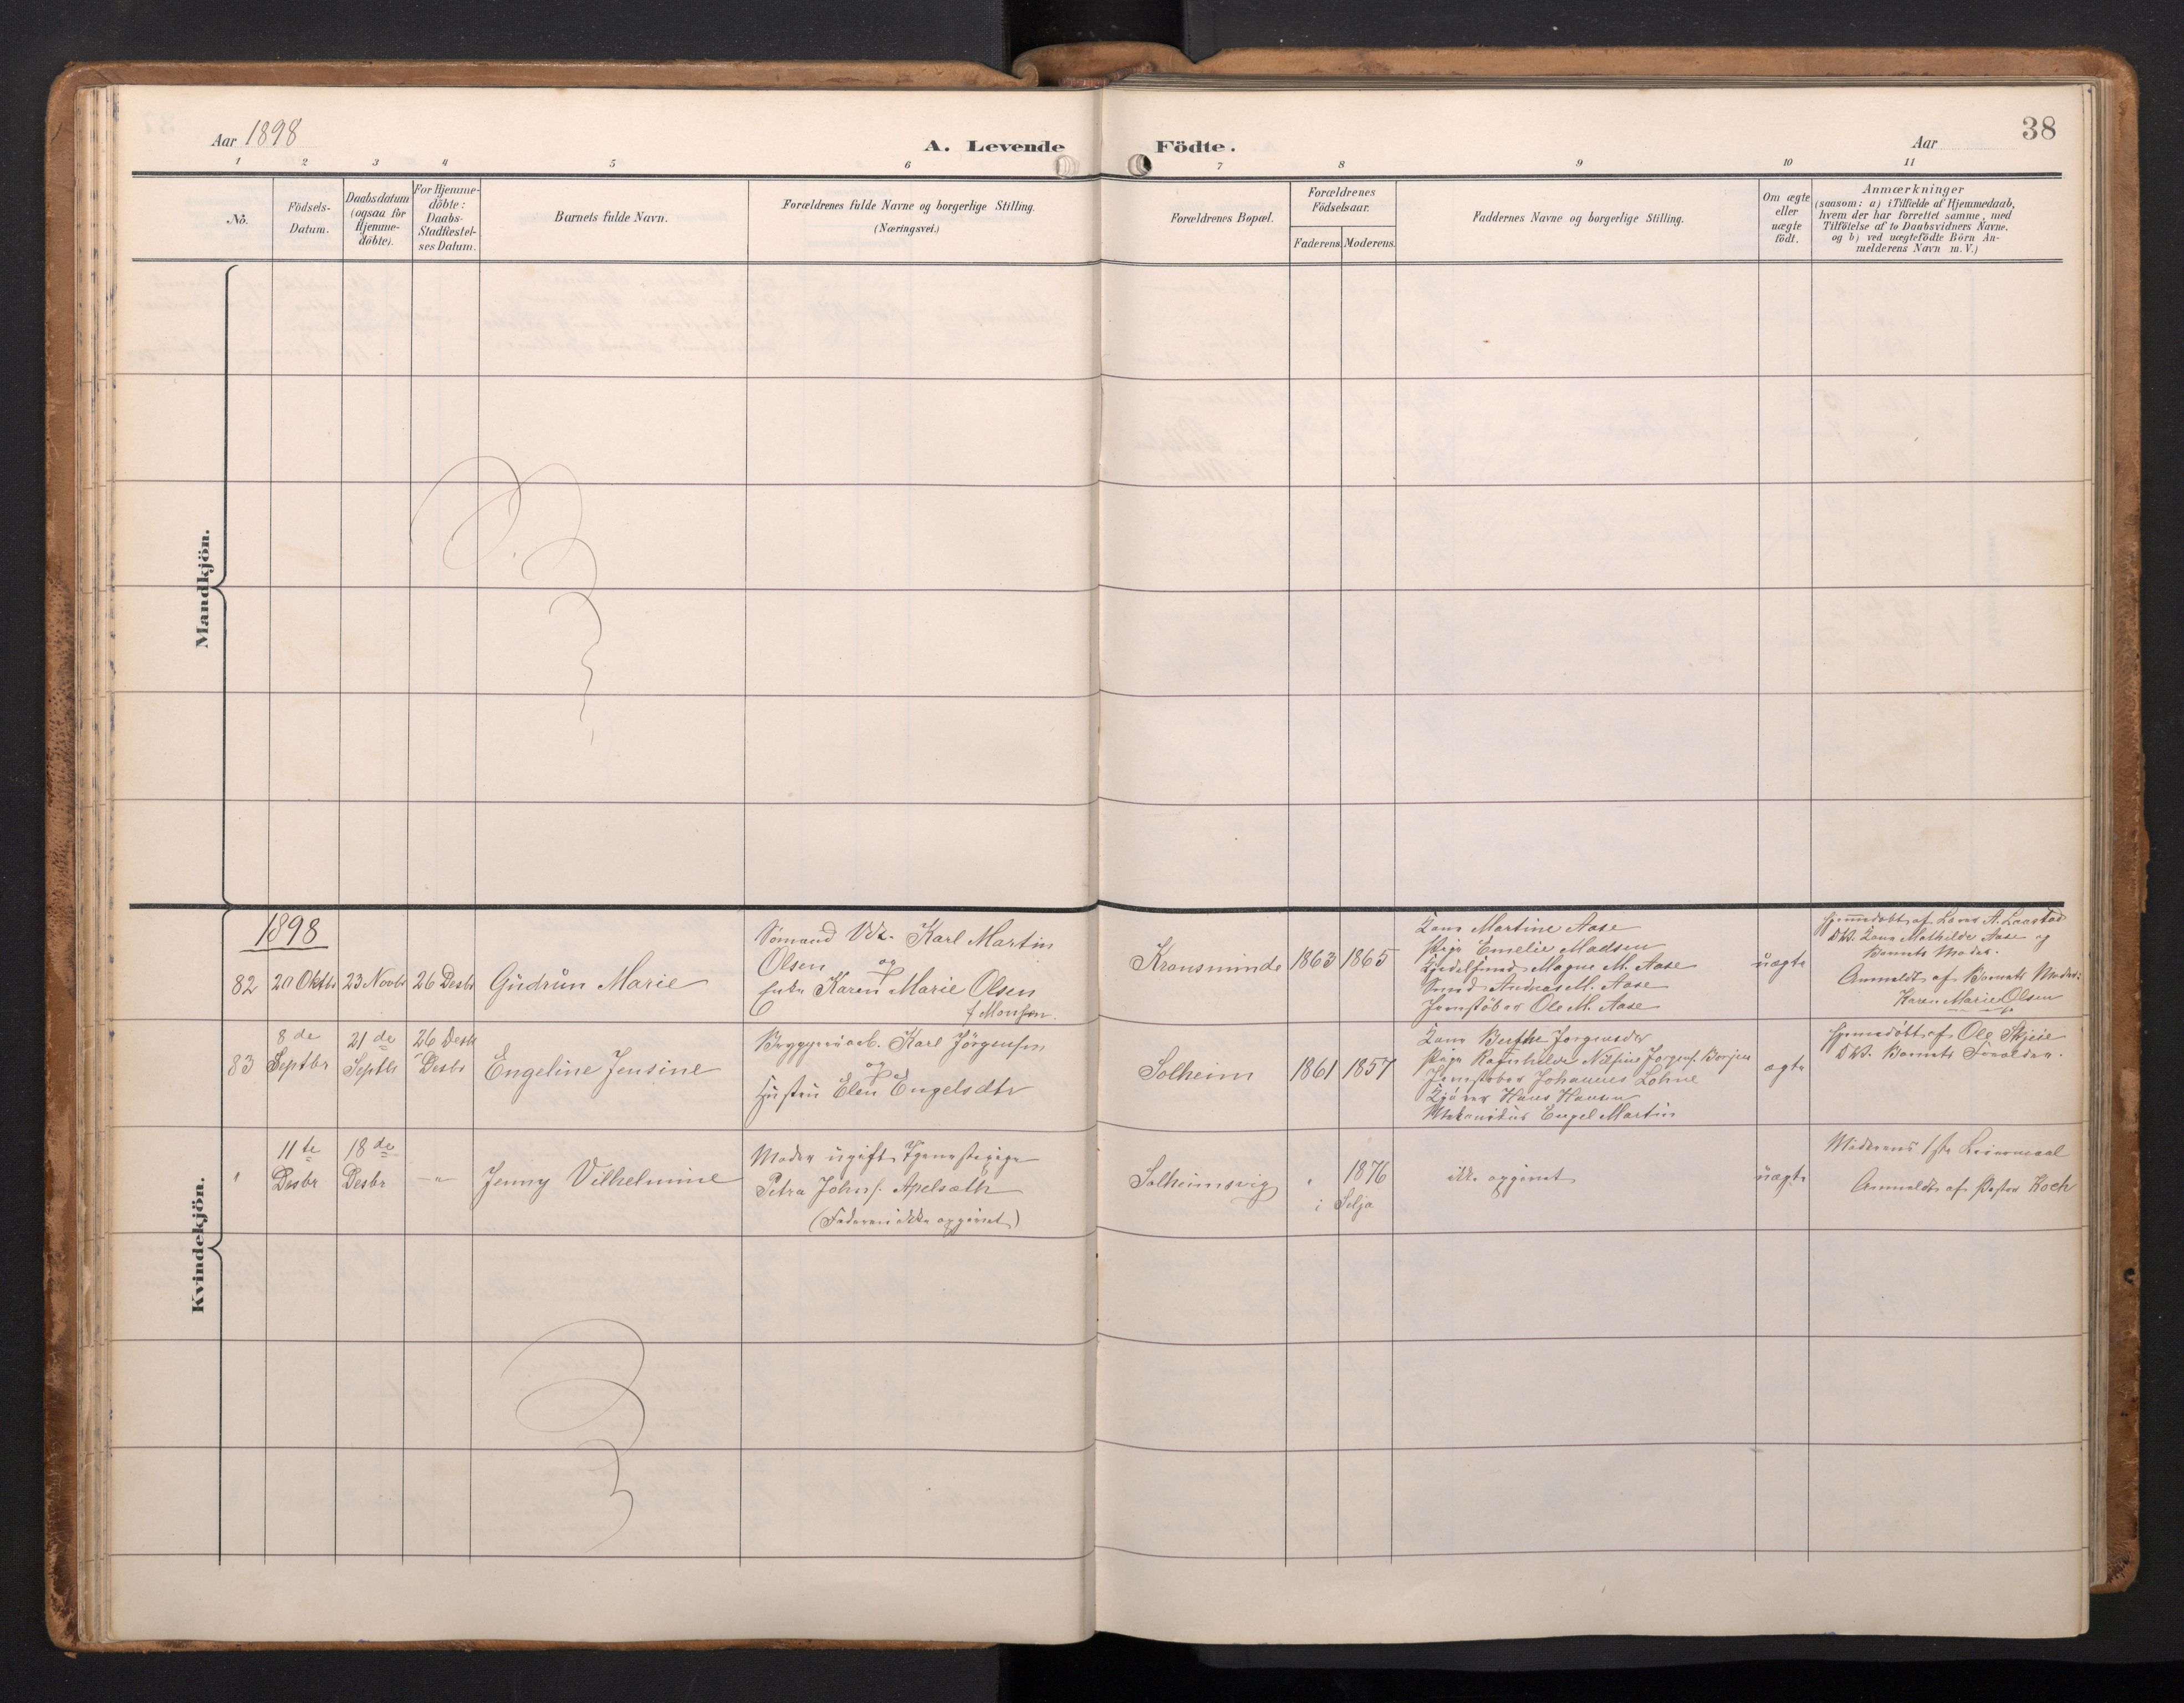 Aar 1898
A. Levende
Födte.
Aar
38
1 2 3 4 5 6 7 8 9 10 11
No.
Födsels-
Datum.
Daabsdatum
(ogsaa for
Hjemme-
döbte).
For Hjemme-
döbte:
Daabs-
Stadfæstel-
ses Datum.
Barnets fulde Navn.
Forældrenes fulde Navne og borgerlige Stilling.
(Næringsvei.)
Forældrenes Bopæl.
Forældrenes
Födselsaar.
Faderens. Moderens.
Faddernes Navne og borgerlige Stilling.
Om ægte
eller
uægte
födt.
Anmærkninger
(saasom: a) i Tilfælde af Hjemmedaab,
hvem der har forrettet samme, med
Tilföielse af to Daabsvidners Navne.
og b) ved uægtefödte Börn An-
melderens Navn m. V.)
Mandkjön.
Kvindekjön.
1898
82
20 Oktb
23 Novbr
26 Desbr
Gudrun Marie
Sömand Karl Martin
Olsen og
Enke Karen Marie Olsen
f. Monsen.
Kronsminde
1863
1865
Kone Martine Aase
Pige Emelie Madsen
Magne M. Aase
Smed Andreas M. Aase
Jernstöber Ole M. Aase
uægte
Hjemmedöbt af Lars A. Laastad
D.V. Kone Mathilde Aase og
Barnets Moder.
Anmeldt af Barnets Moder:
Karen Marie Olsen
83
8de
Septbr
21de
Septbr
26 Desb
Desbr
Engeline Jensine
Bryggeriarb. Karl Jörgensen
og
Hustru Elen Engelsdtr
Solheim
1861
1857
Kone Berthe Jorgensdtr
Pige Ragnhilda Nilsine Jorgens.
Jernstöber Johannes Lohne
Hans Hansen
Engel Martin
ægte
Hjemmedöbt af Ole Skjeie
D.V. Barnets Forældre.
"
11te
Desbr
18de
Desbr
—"
Jenny Vilhelmine
Moder ugift Tjenestepige
Petra Johns. Apelsæth
(Faderen ikke opgivet)
Solheimsvig
"
1876
i Selja
ikke opgivet
uægte
Moderens 1ste Leiermaal
Anmeldt af Pastor Koch